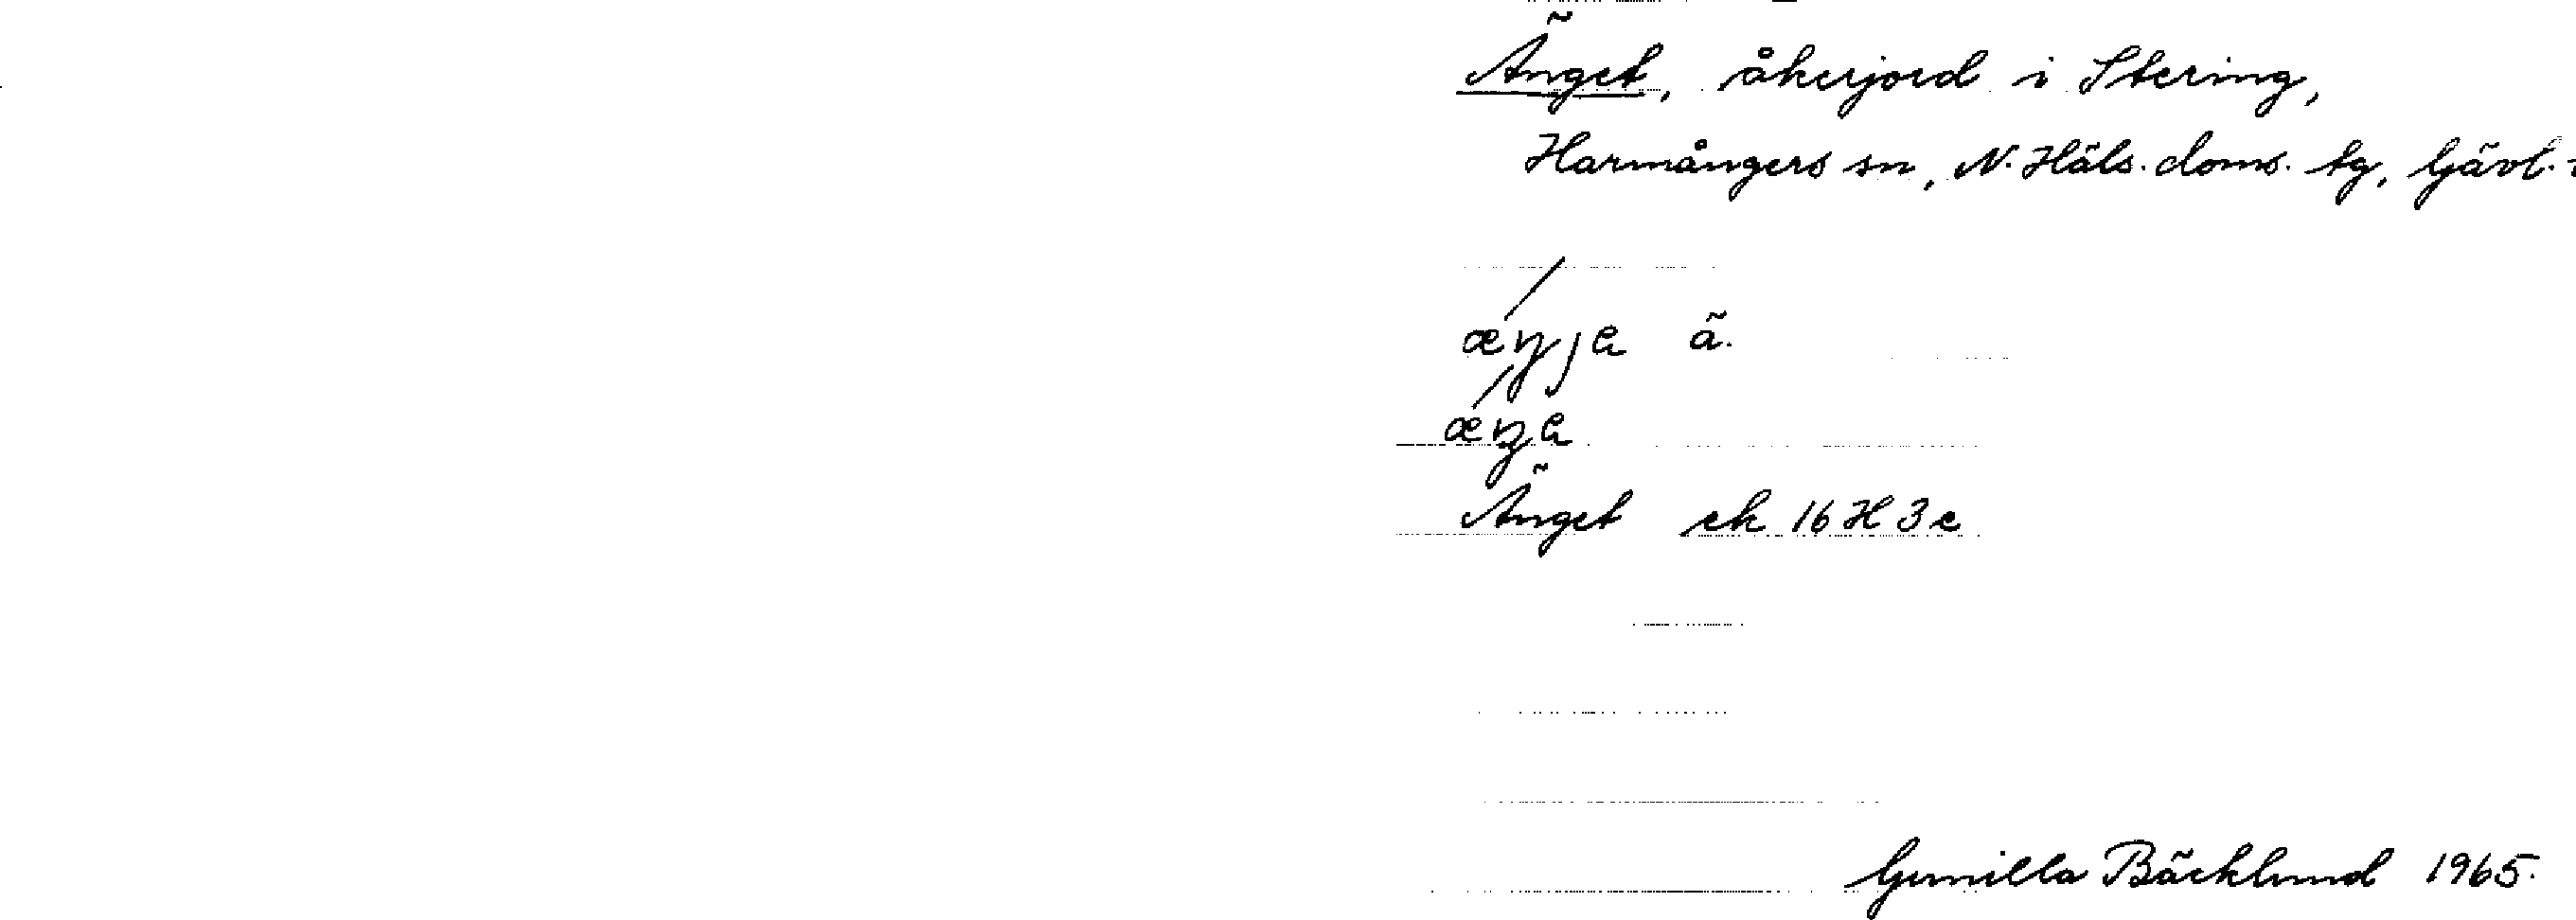 Änget, åkerjord i Stering,
Harmångers sn, N. Häls. doms. tg, Gävl.
æŋja ä.
æŋa
Änget ek 16 H 3 e
Gunilla Bäcklund 1965.